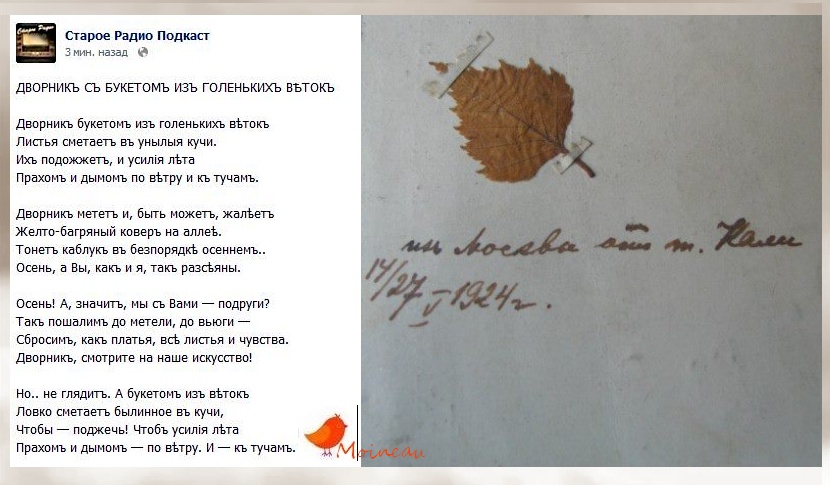 Старое Радио Подкаст
3 мин. назад
ДВОРНИКЪ СЪ БУКЕТОМЪ ИЗЪ ГОЛЕНЬКИХЪ ВѢТОКЪ
Дворникъ букетомъ изъ голенькихъ вѣтокъ
Листья сметаетъ въ унылыя кучи.
Ихъ подожжетъ, и усилія лѣта
Прахомъ и дымомъ по вѣтру и къ тучамъ.
Дворникъ мететъ и, быть можетъ, жалѣетъ
Желто-багряный коверъ на аллеѣ.
Тонетъ каблукъ въ безпорядкѣ осеннемъ..
Осень, а Вы, какъ и я, такъ разсѣяны.
Осень! А, значитъ, мы съ Вами — подруги?
Такъ пошалимъ до метели, до вьюги —
Сбросимъ, какъ платья, всѣ листья и чувства.
Дворникъ, смотрите на наше искусство!
Но.. не глядитъ. А букетомъ изъ вѣтокъ
Ловко сметаетъ былинное въ кучи,
Чтобы — поджечь! Чтобъ усилія лѣта
Прахомъ и дымомъ — по вѣтру. И — къ тучамъ.
Moineau
изъ Москвы отъ т. Кали
14/27 V 1924 г.